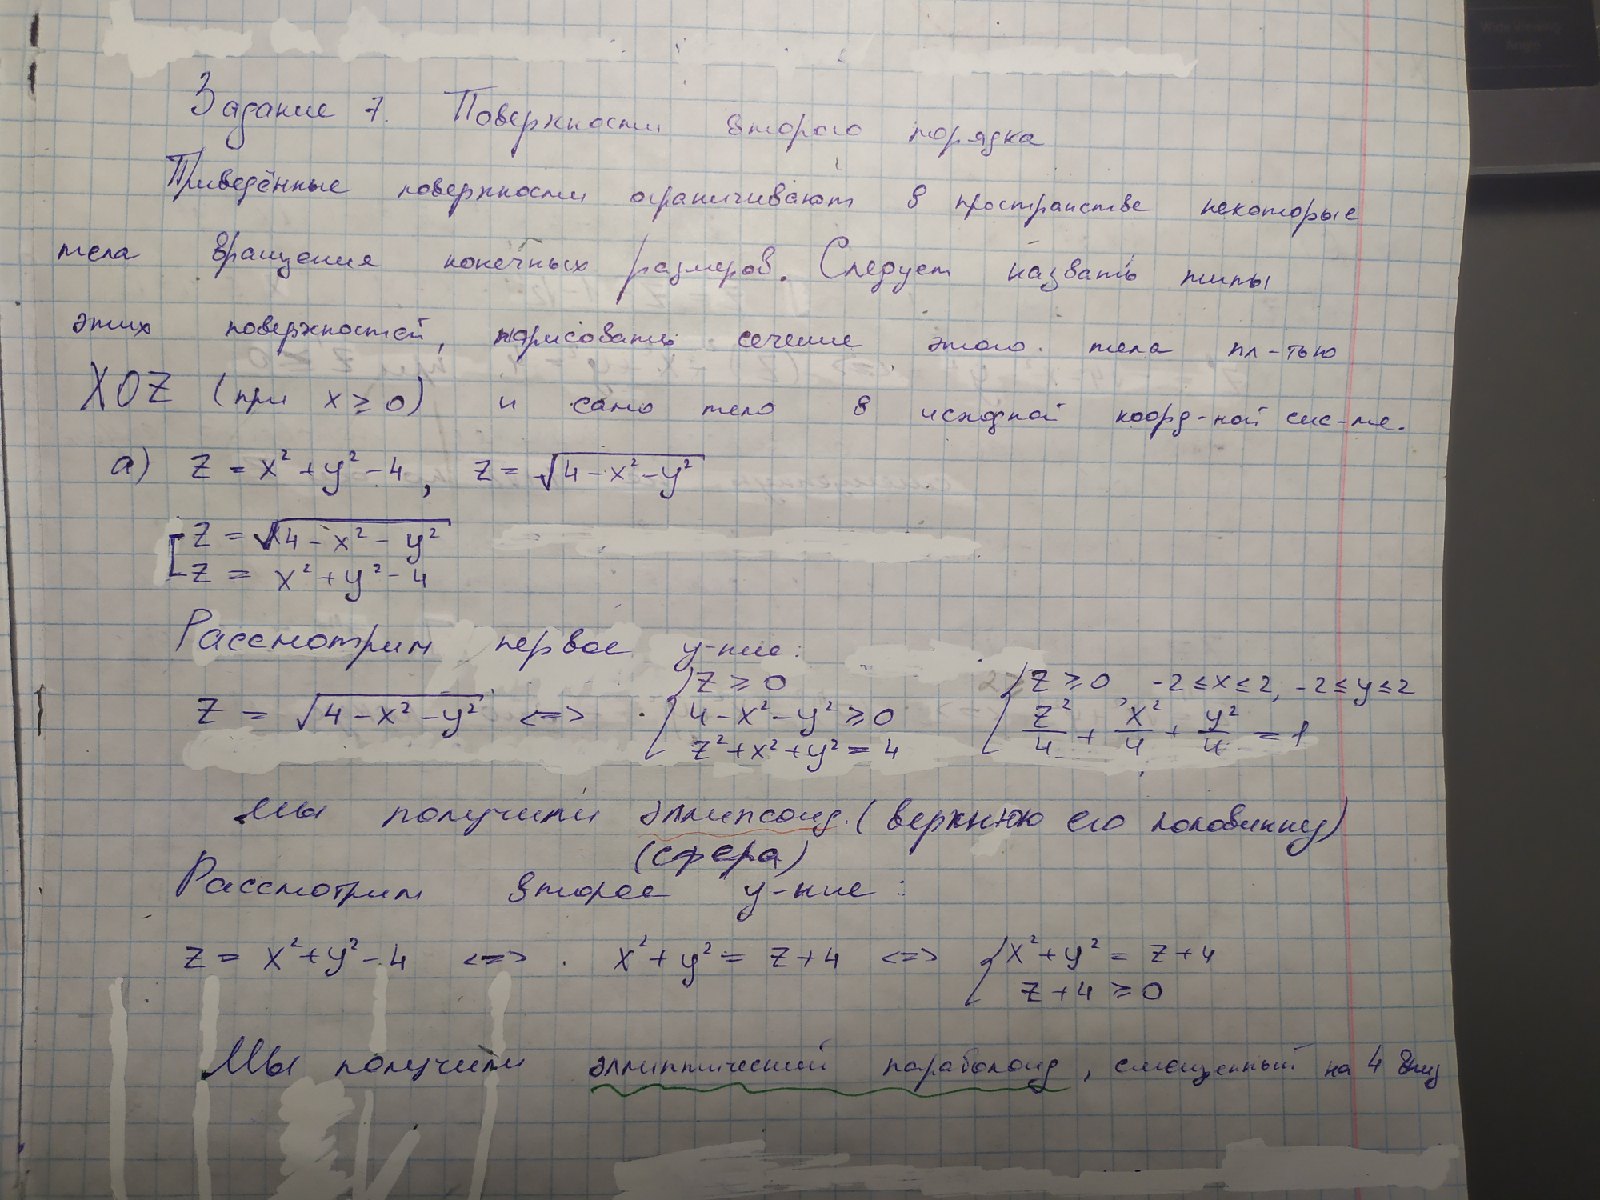 Wide Viewing
Angle
Задание 7. Поверхности второго порядка
Приведённые поверхности ограничивают в пространстве некоторые
тела вращения конечных размеров. Следует назвать типы
этих поверхностей, нарисовать сечение этого тела пл-тью
XOZ (при x ≥ 0) и само тело в исходной коорд-ной сис-ме.
а) z = x² + y² - 4, z = √(4 - x² - y²)
[ z = √(4 - x² - y²)
z = x² + y² - 4
Рассмотрим первое у-ние:
z = √(4 - x² - y²) <=> { z ≥ 0
4 - x² - y² ≥ 0
z² + x² + y² = 4
{ z ≥ 0, -2 ≤ x ≤ 2, -2 ≤ y ≤ 2
z²/4 + x²/4 + y²/4 = 1
Мы получили эллипсоид (верхнюю его половинку)
(сфера)
Рассмотрим второе у-ние:
z = x² + y² - 4 <=> x² + y² = z + 4 <=> { x² + y² = z + 4
z + 4 ≥ 0
Мы получили эллиптический параболоид, смещенный на 4 вниз